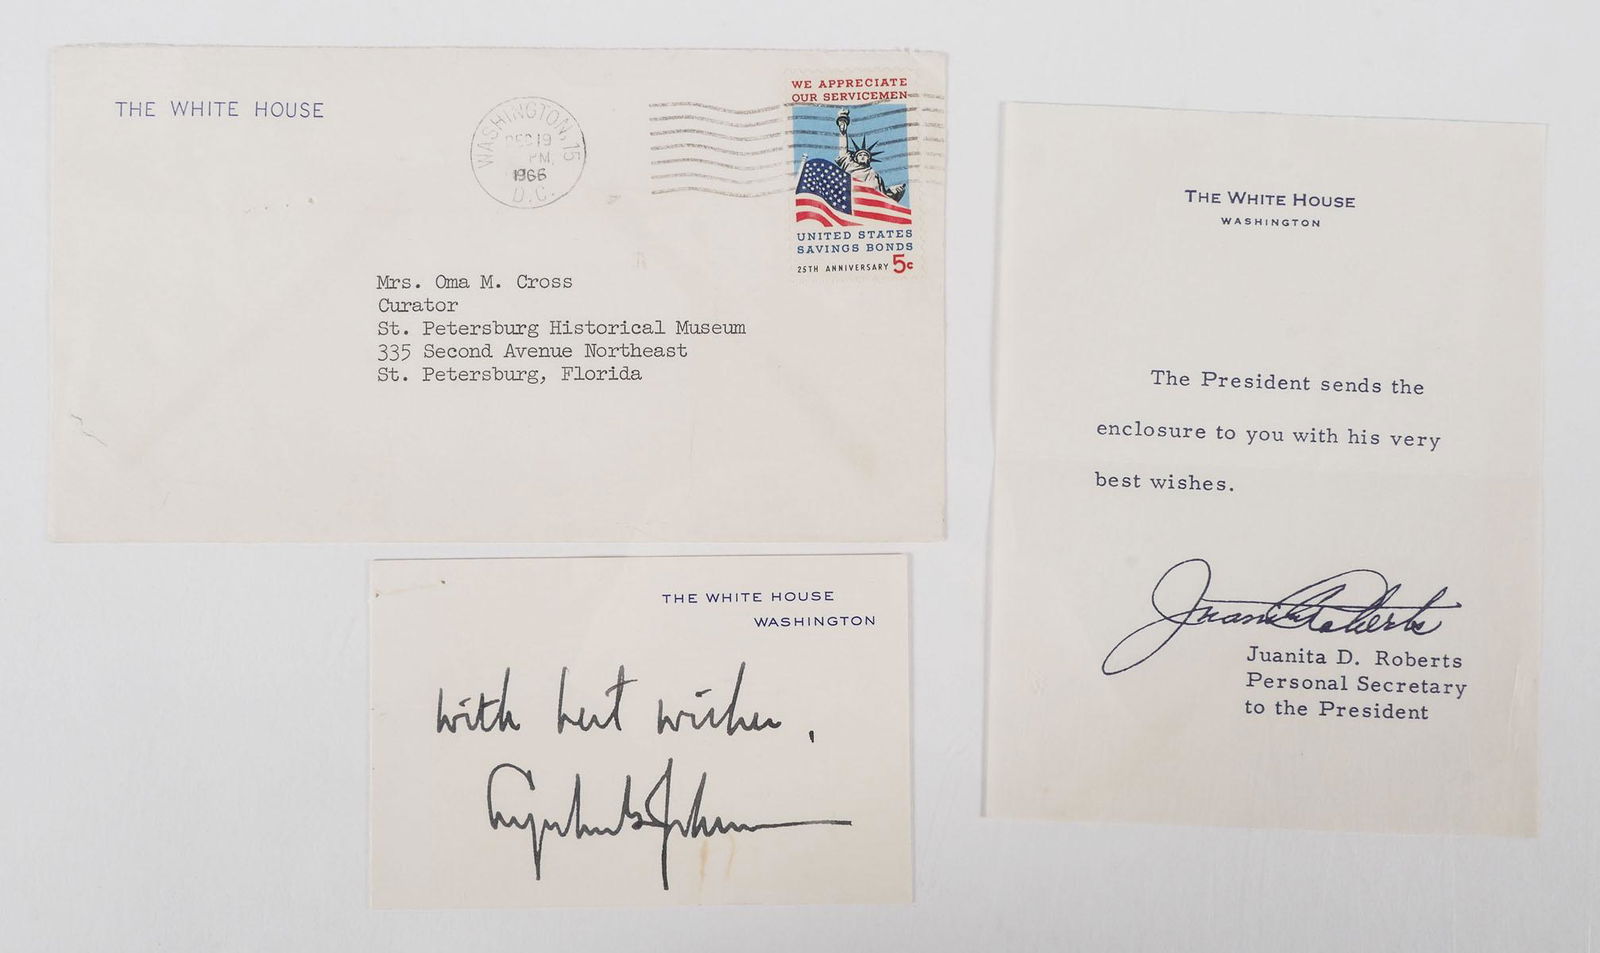 THE WHITE HOUSE
WASHINGTON, 15
DEC 19
PM
1966
D.C.
WE APPRECIATE
OUR SERVICEMEN
UNITED STATES
SAVINGS BONDS
25TH ANNIVERSARY 5c
Mrs. Oma M. Cross
Curator
St. Petersburg Historical Museum
335 Second Avenue Northeast
St. Petersburg, Florida
THE WHITE HOUSE
WASHINGTON
with best wishes,
Lyndon B Johnson
THE WHITE HOUSE
WASHINGTON
The President sends the
enclosure to you with his very
best wishes.
Juanita Roberts
Juanita D. Roberts
Personal Secretary
to the President